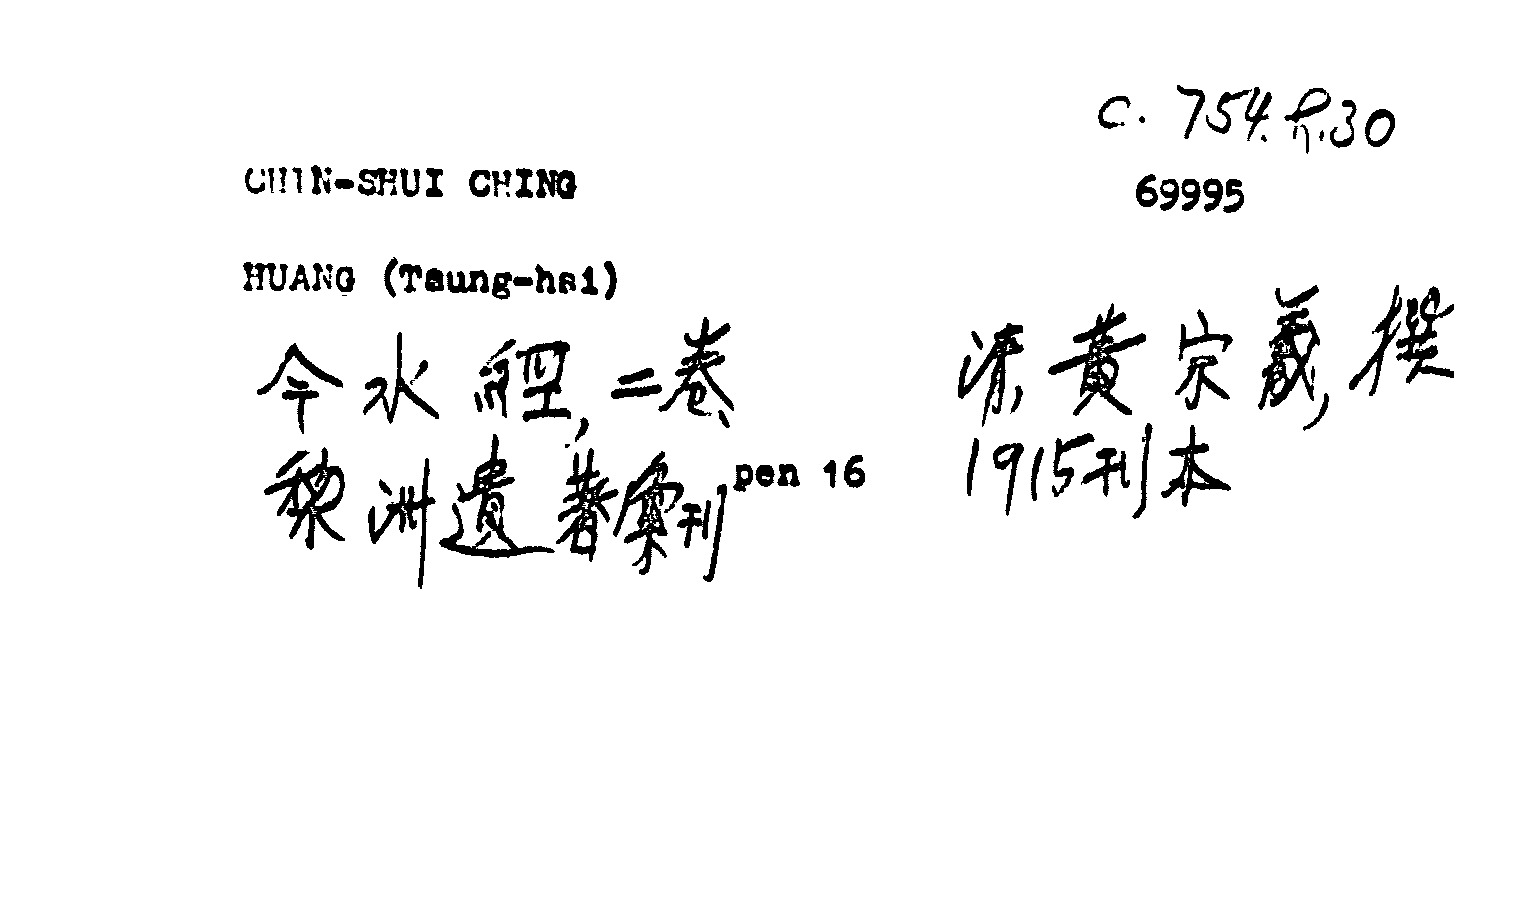 C. 754.h.30
CHIN-SHUI CHING
69995
HUANG (Tsung-hsi)
今水經,二卷、 清,黃宗羲,撰
黎洲遺著彙刊 pen 16 1915刊本